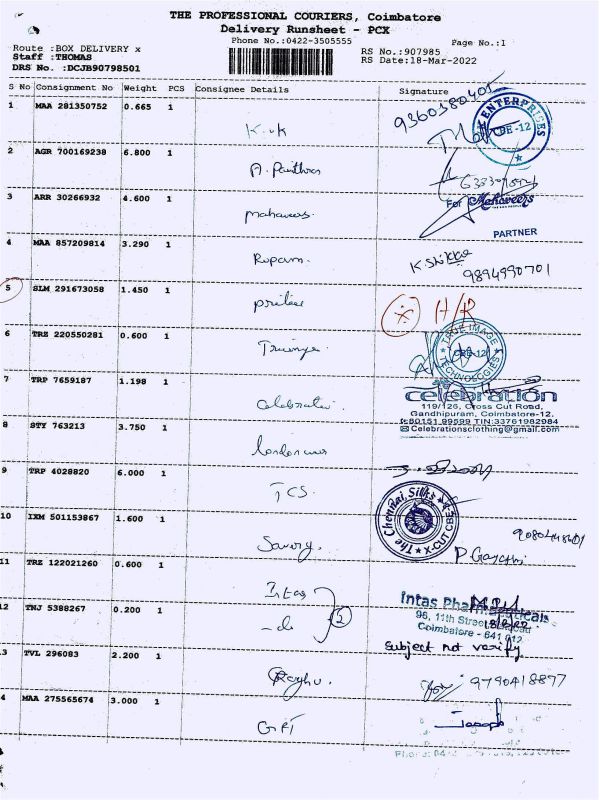 THE PROFESSIONAL COURIERS, Coimbatore
Delivery Runsheet - PCX
Phone No.:0422-3505555
Page No.:1
Route :BOX DELIVERY x
RS No.:907985
Staff :THOMAS
RS Date:18-Mar-2022
DRS No. :DCJB90798501
S No Consignment No Weight PCS Consignee Details Signature
1 MAA 281350752 0.665 1
9360380405
ENTERPRISES
CBE-12
K.uk
2 AGR 700169238 6.800 1
3 ARR 30266932 4.600 1
For Mahaveers
PARTNER
mahaveers.
4 MAA 857209814 3.290 1
Rupam.
9894990701
5 SLM 291673058 1.450 1
H/R
6 TRZ 220550281 0.600 1
TRUE IMAGE
CBE-12
TECHNOLOGIES
7 TRP 7659187 1.198 1
celebration
119/126, Cross Cut Road,
Gandhipuram, Coimbatore-12.
80151 99599 TIN:33761982984
Celebrationsclothing@gmail.com
8 STY 763213 3.750 1
9 TRP 4028820 6.000 1
TCS.
The Chennai Silks
X-CUT CBE
10 IXM 501153867 1.600 1
11 TRZ 122021260 0.600 1
Intas
Intas Pharmaceuticals
12 TNJ 5388267 0.200 1
2
96, 11th Street
Coimbatore - 641 012
subject not verify
13 TVL 296083 2.200 1
Raghu.
9790418897
14 MAA 275565674 3.000 1
GPT
Joseph